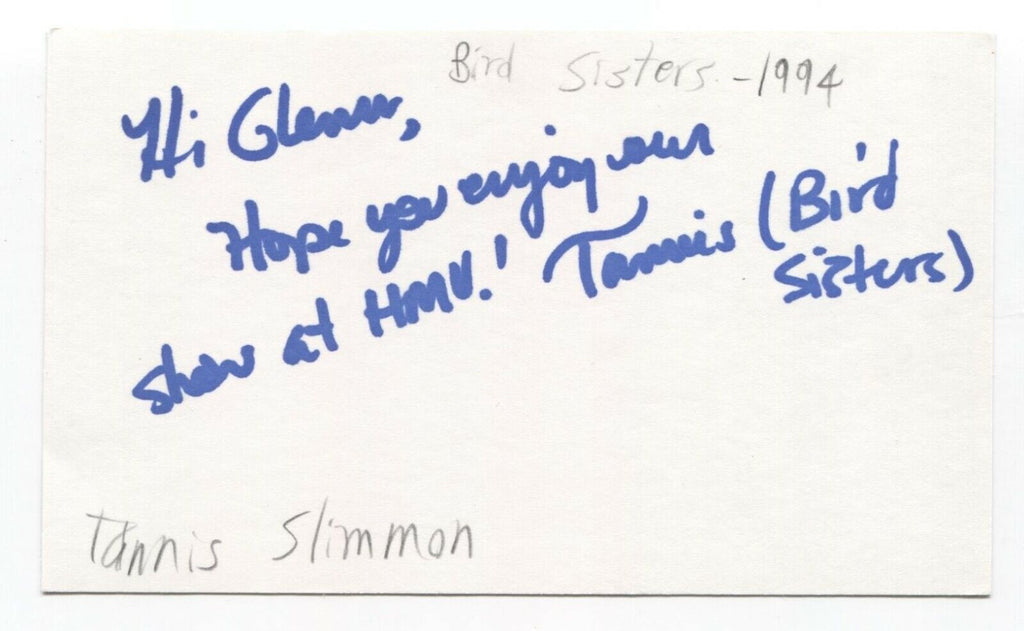 Bird Sisters - 1994
Hi Glenn,
Hope you enjoy our
show at HMV! Tannis (Bird
Sisters)
Tannis Slimmon